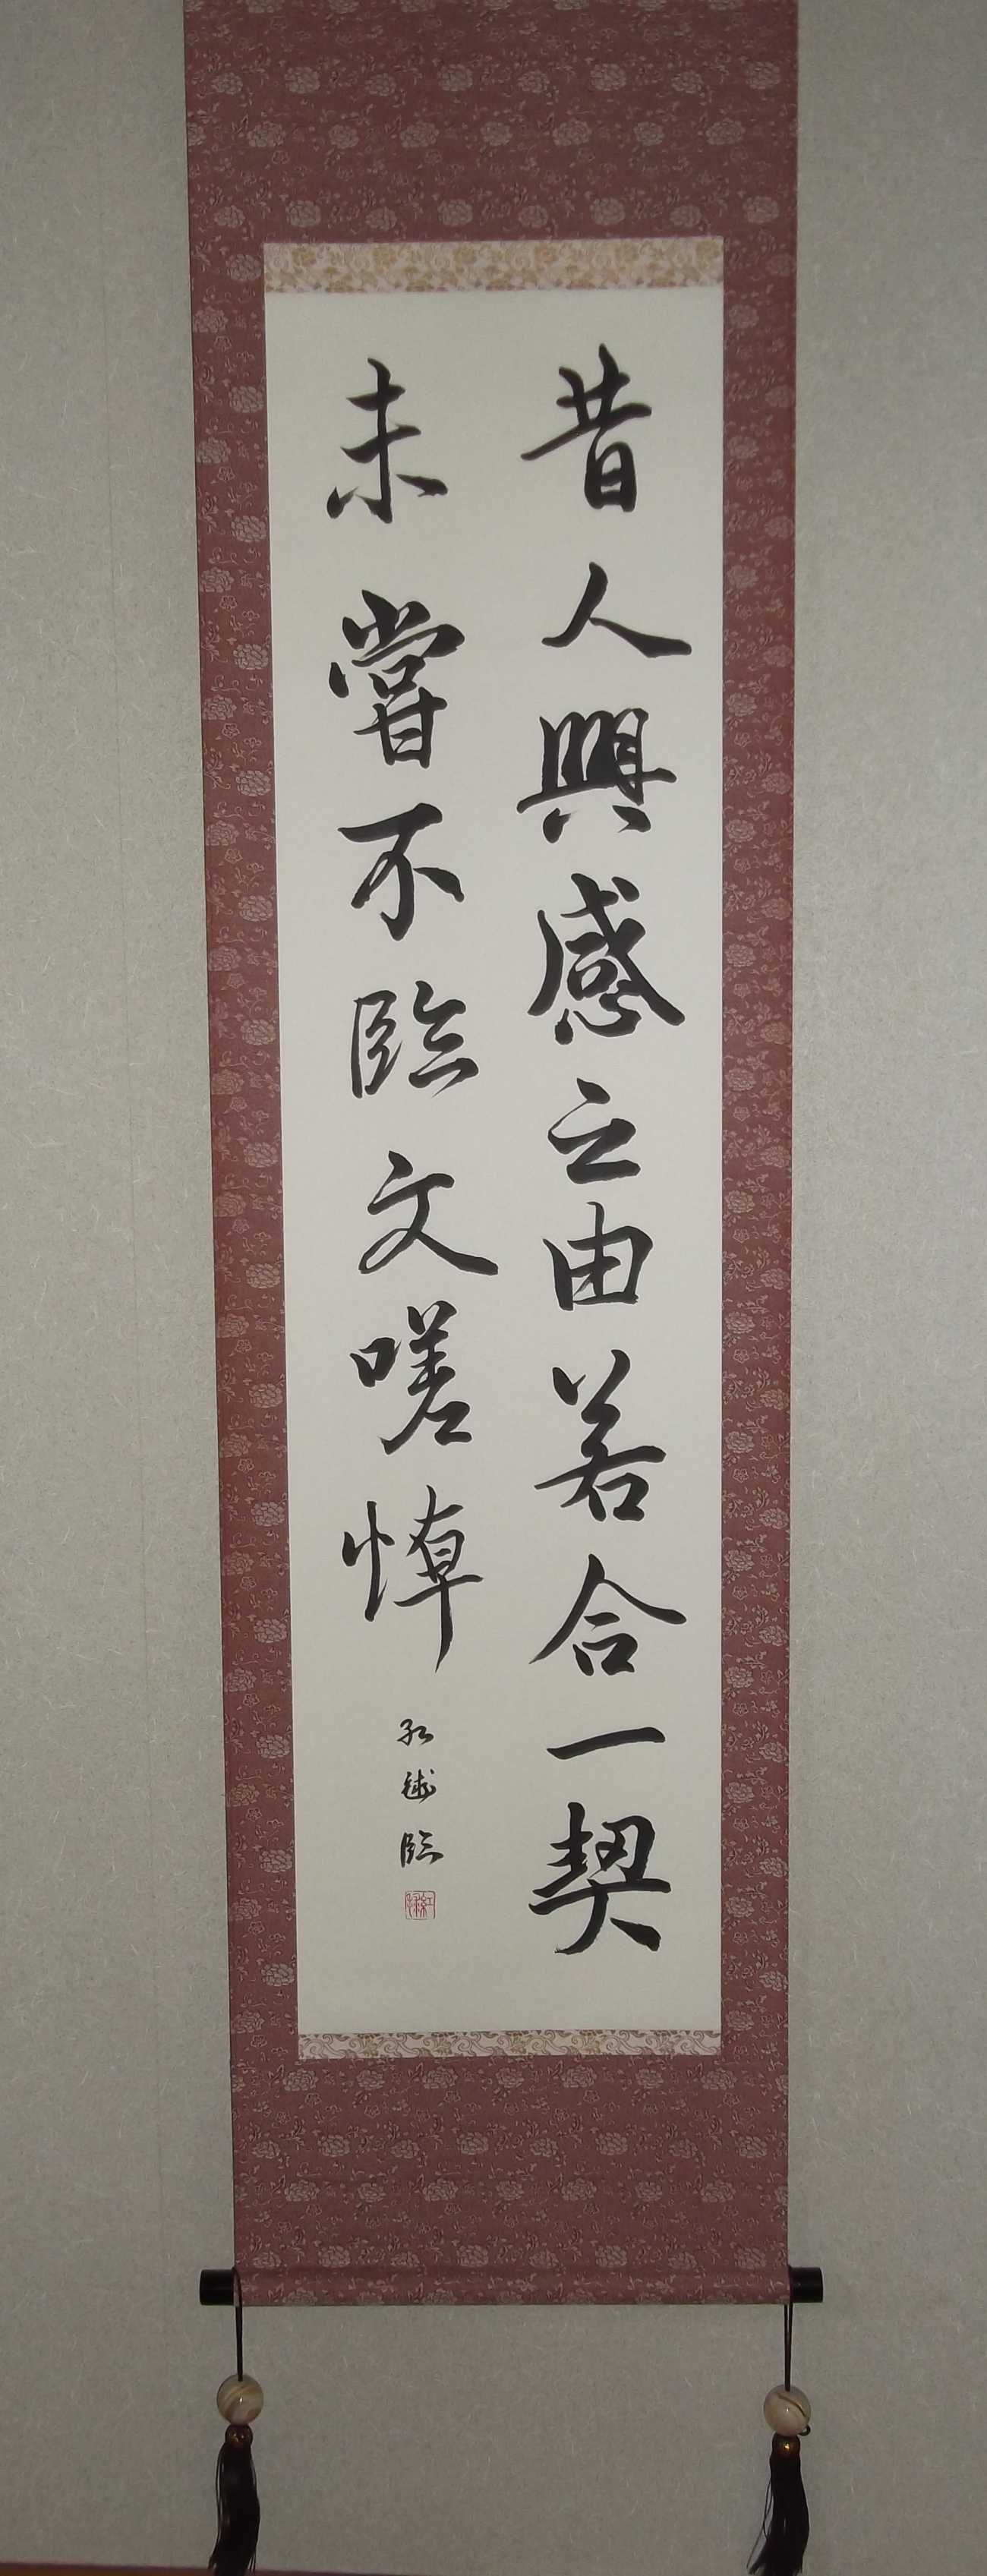 昔人興感之由若合一契
未嘗不臨文嗟悼
紅越臨